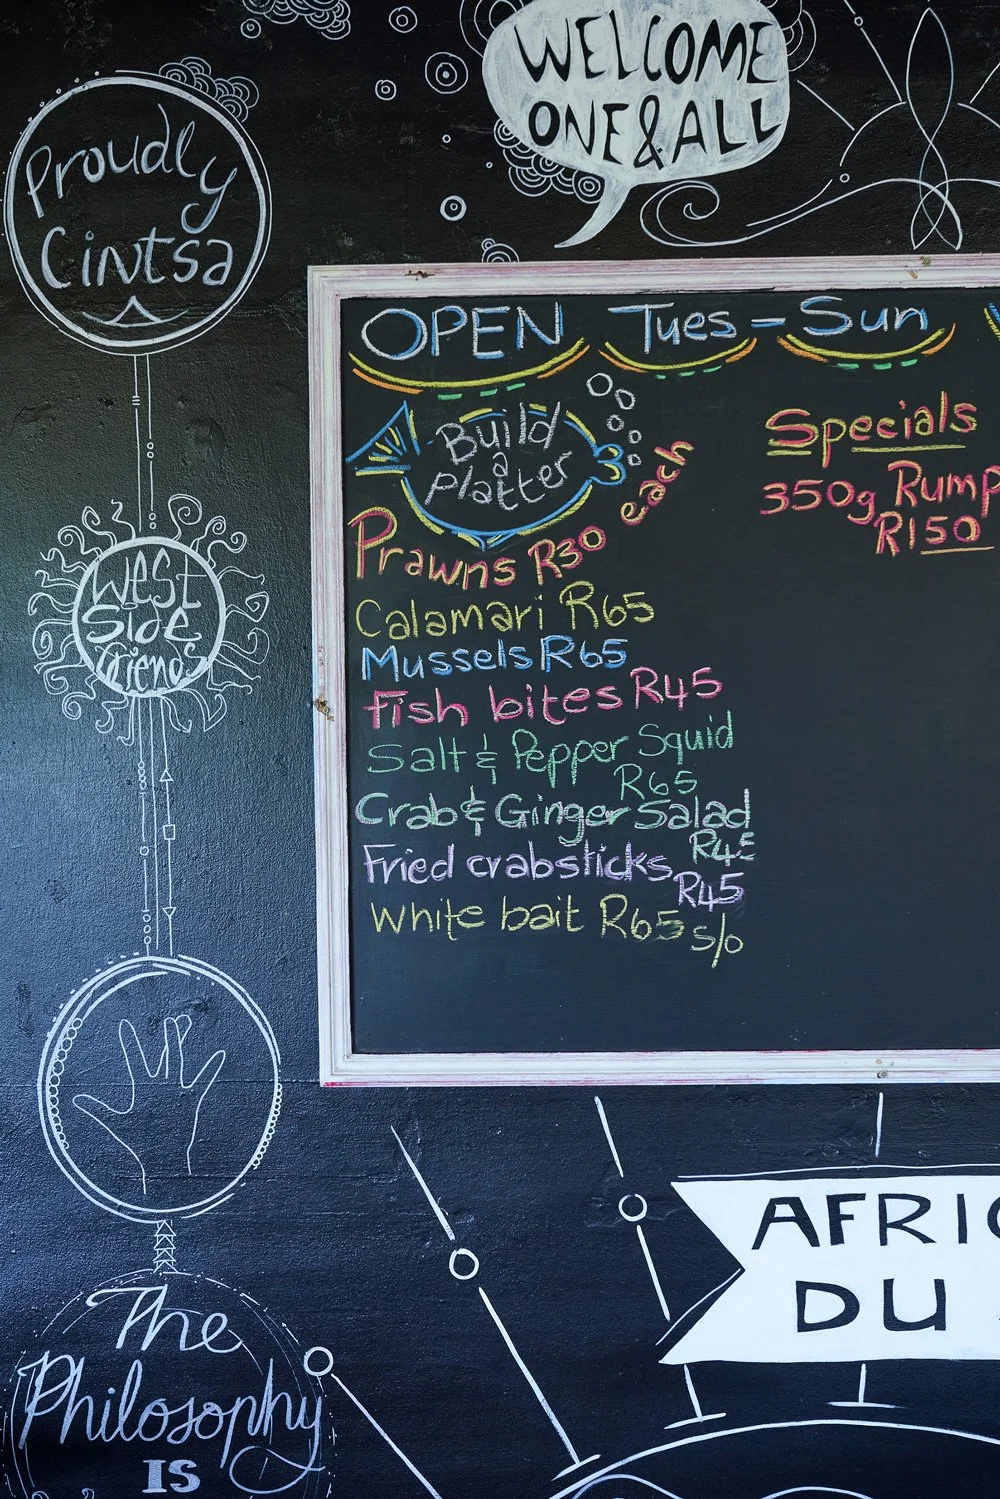 WELCOME
ONE & ALL
Proudly
Cintsa
OPEN Tues - Sun
Build
a
Platter
Prawns R30 each
Calamari R65
Mussels R65
Fish bites R45
Salt & Pepper Squid
R65
Crab & Ginger Salad
R45
Fried crabsticks
R45
White bait R65 s/o
Specials
350g Rump
R150
West
Side
friends
AFRIC
DU
The
Philosophy
IS